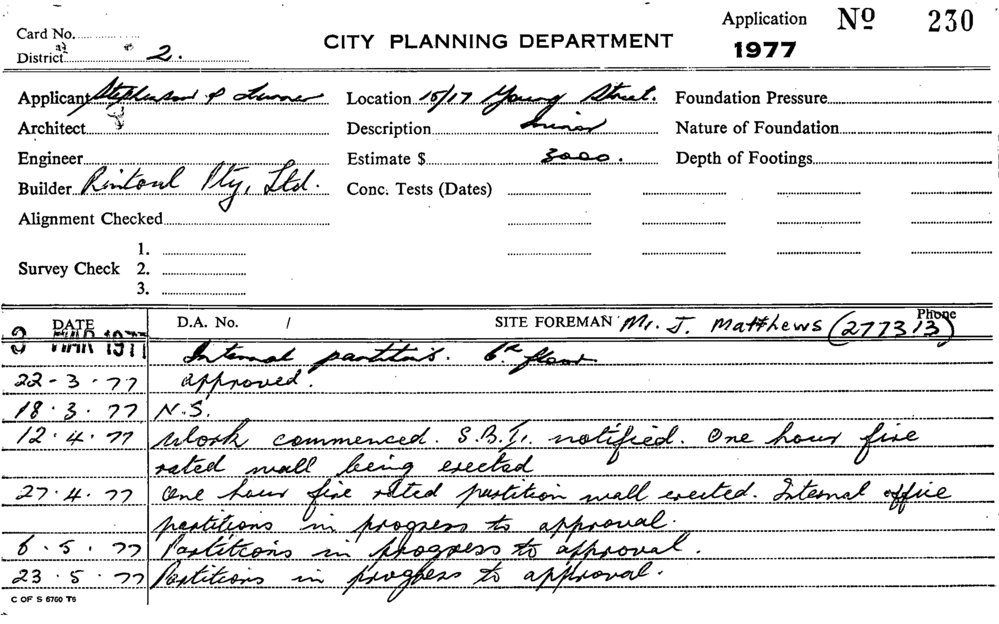 Card No.
District 2.
CITY PLANNING DEPARTMENT
Application Nº 230
1977
Applicant Stephenson & Turner
Location 15/17 Young Street.
Foundation Pressure
Architect
Description minor
Nature of Foundation
Engineer
Estimate $ 3000.
Depth of Footings
Builder Rintoul Pty, Ltd.
Conc. Tests (Dates)
Alignment Checked
Survey Check
1.
2.
3.
DATE
D.A. No. /
SITE FOREMAN Mr. J. Matthews
Phone
(277313)
3 MAR 1977 Internal partitions. 6th floor
22-3-77 approved.
18.3.77 N.S.
12.4.77 Work commenced. S.B.I. notified. One hour fire
rated wall being erected
27.4.77 One hour fire rated partition wall erected. Internal office
partitions in progress to approval.
6.5.77 Partitions in progress to approval.
23.5.77 Partitions in progress to approval.
C OF S 6760 T6